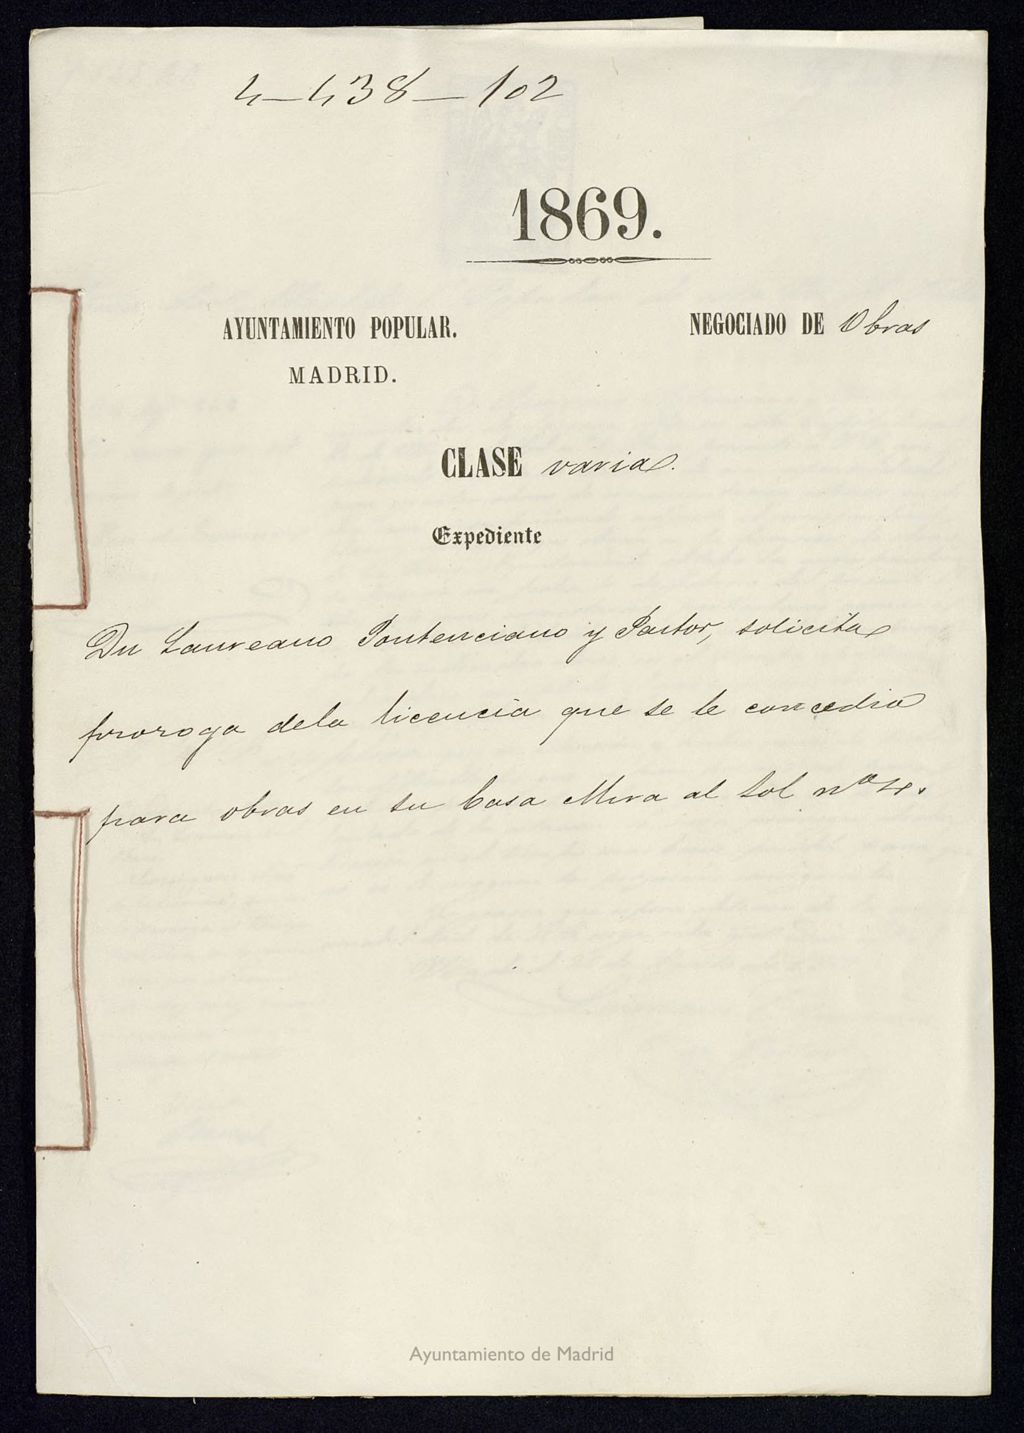 4-438-102
1869.
AYUNTAMIENTO POPULAR.
NEGOCIADO DE Obras
MADRID.
CLASE varia.
Expediente
Dn Laureano Pontenciano y Pastor, solicita
proroga dela licencia que se le concedio
para obras en su Casa Mira al Sol nº 4.
Ayuntamiento de Madrid